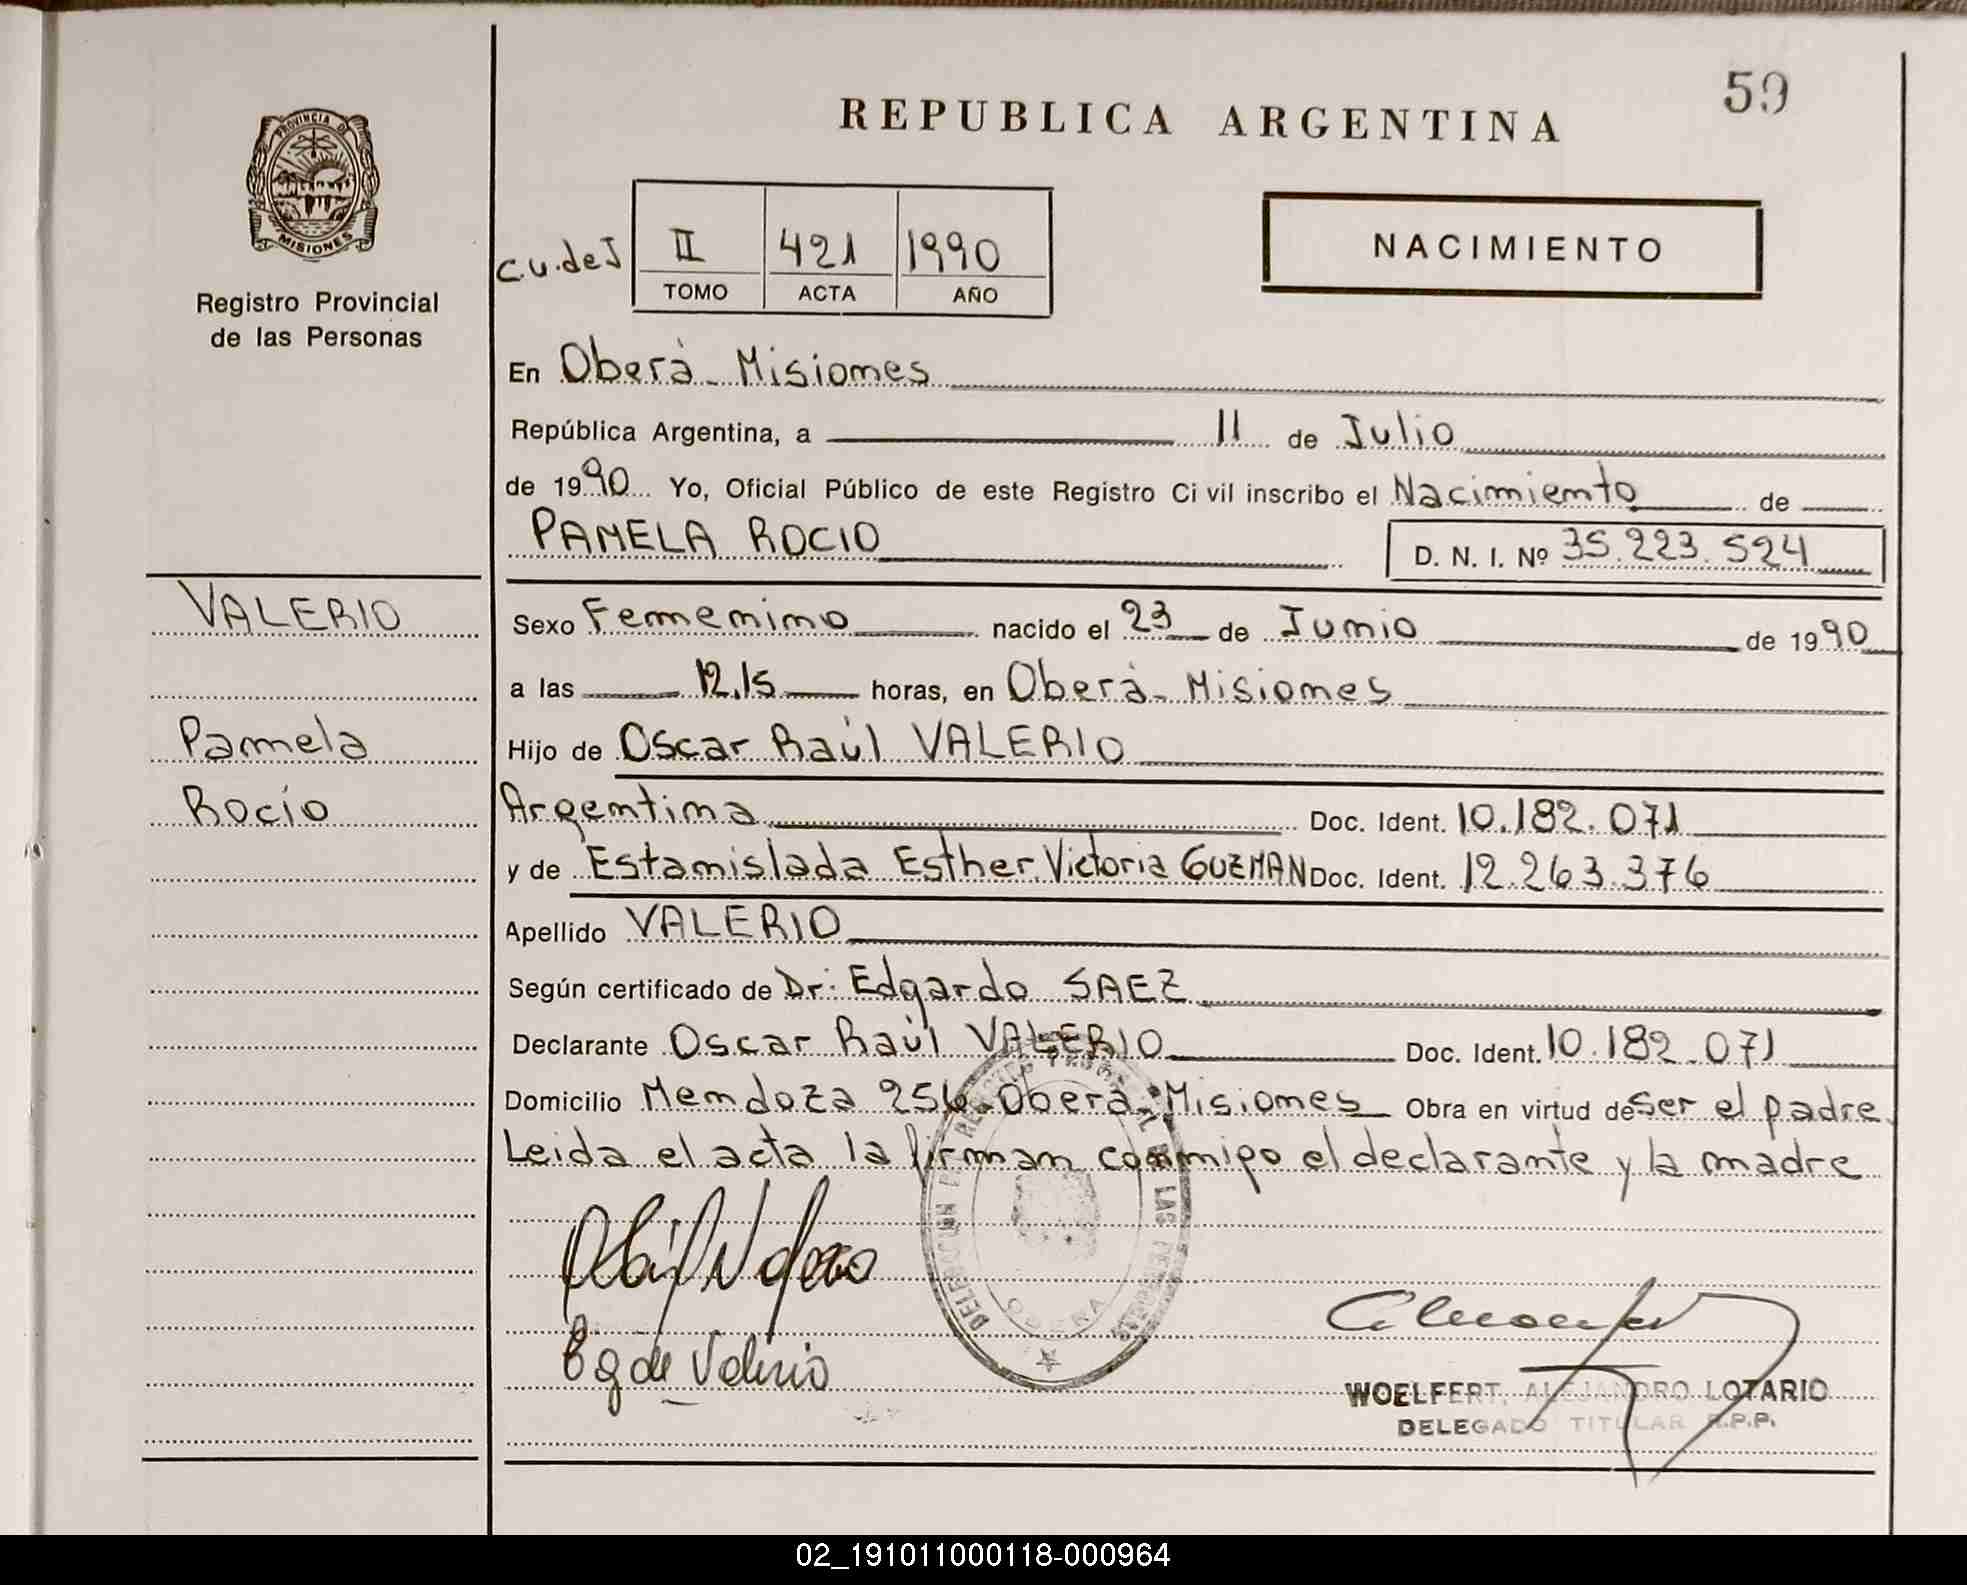 59
REPUBLICA ARGENTINA
PROVINCIA DE
MISIONES
Registro Provincial
de las Personas
C.U.deJ II 421 1990
TOMO ACTA AÑO
NACIMIENTO
En Oberá - Misiones
República Argentina, a 11 de Julio
de 1990 Yo, Oficial Público de este Registro Ci vil inscribo el Nacimiento de
PAMELA ROCIO D. N. I. Nº 35.223.524
VALERIO
Sexo Femenino nacido el 23 de Junio de 1990
a las 12.15 horas, en Oberá - Misiones
Pamela
Hijo de Oscar Raúl VALERIO
Rocío
Argentina Doc. Ident. 10.182.071
y de Estanislada Esther Victoria GUZMAN Doc. Ident. 12.263.376
Apellido VALERIO
Según certificado de Dr: Edgardo SAEZ
Declarante Oscar Raúl VALERIO Doc. Ident. 10.182.071
Domicilio Mendoza 256 - Oberá - Misiones Obra en virtud de ser el padre
Leida el acta la firman conmigo el declarante y la madre
DELEGACION DEL REGISTRO PROVINCIAL DE LAS PERSONAS
OBERA
E g de Valerio
WOELFERT, ALEJANDRO LOTARIO
DELEGADO TITULAR R.P.P.
02_191011000118-000964